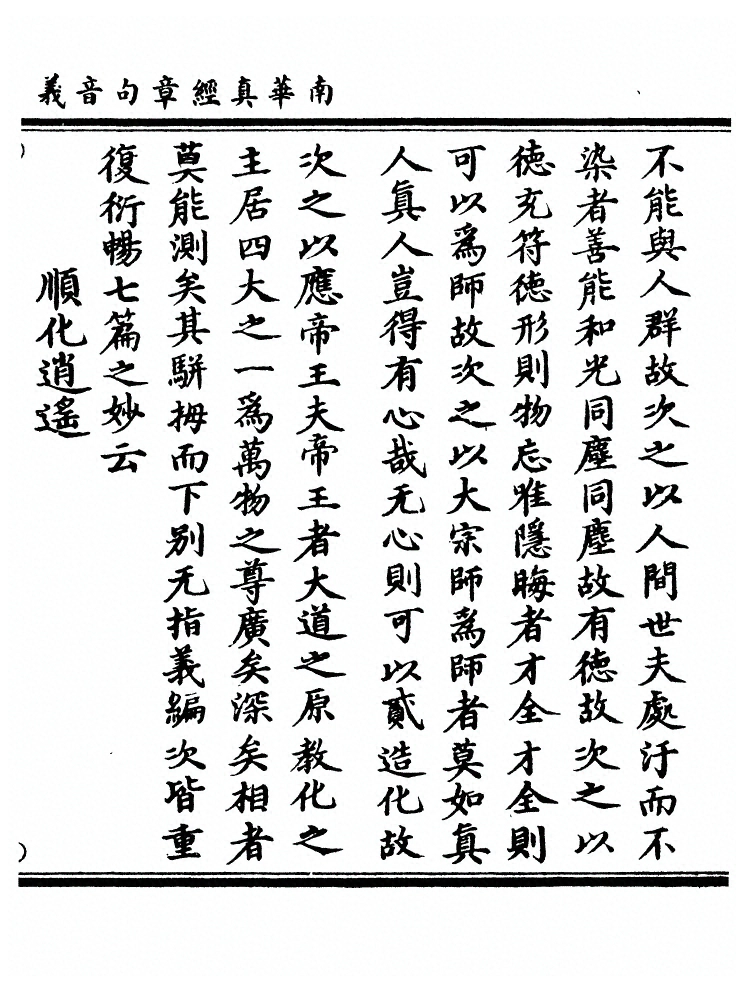 南華真經章句音義
不能與人群故次之以人間世夫處汙而不
染者善能和光同塵同塵故有德故次之以
德充符德形則物忘唯隱晦者才全才全則
可以為師故次之以大宗師為師者莫如真
人真人豈得有心哉无心則可以貳造化故
次之以應帝王夫帝王者大道之原教化之
主居四大之一為萬物之尊廣矣深矣相者
莫能測矣其駢拇而下別无指義編次皆重
復衍暢七篇之妙云
順化逍遙